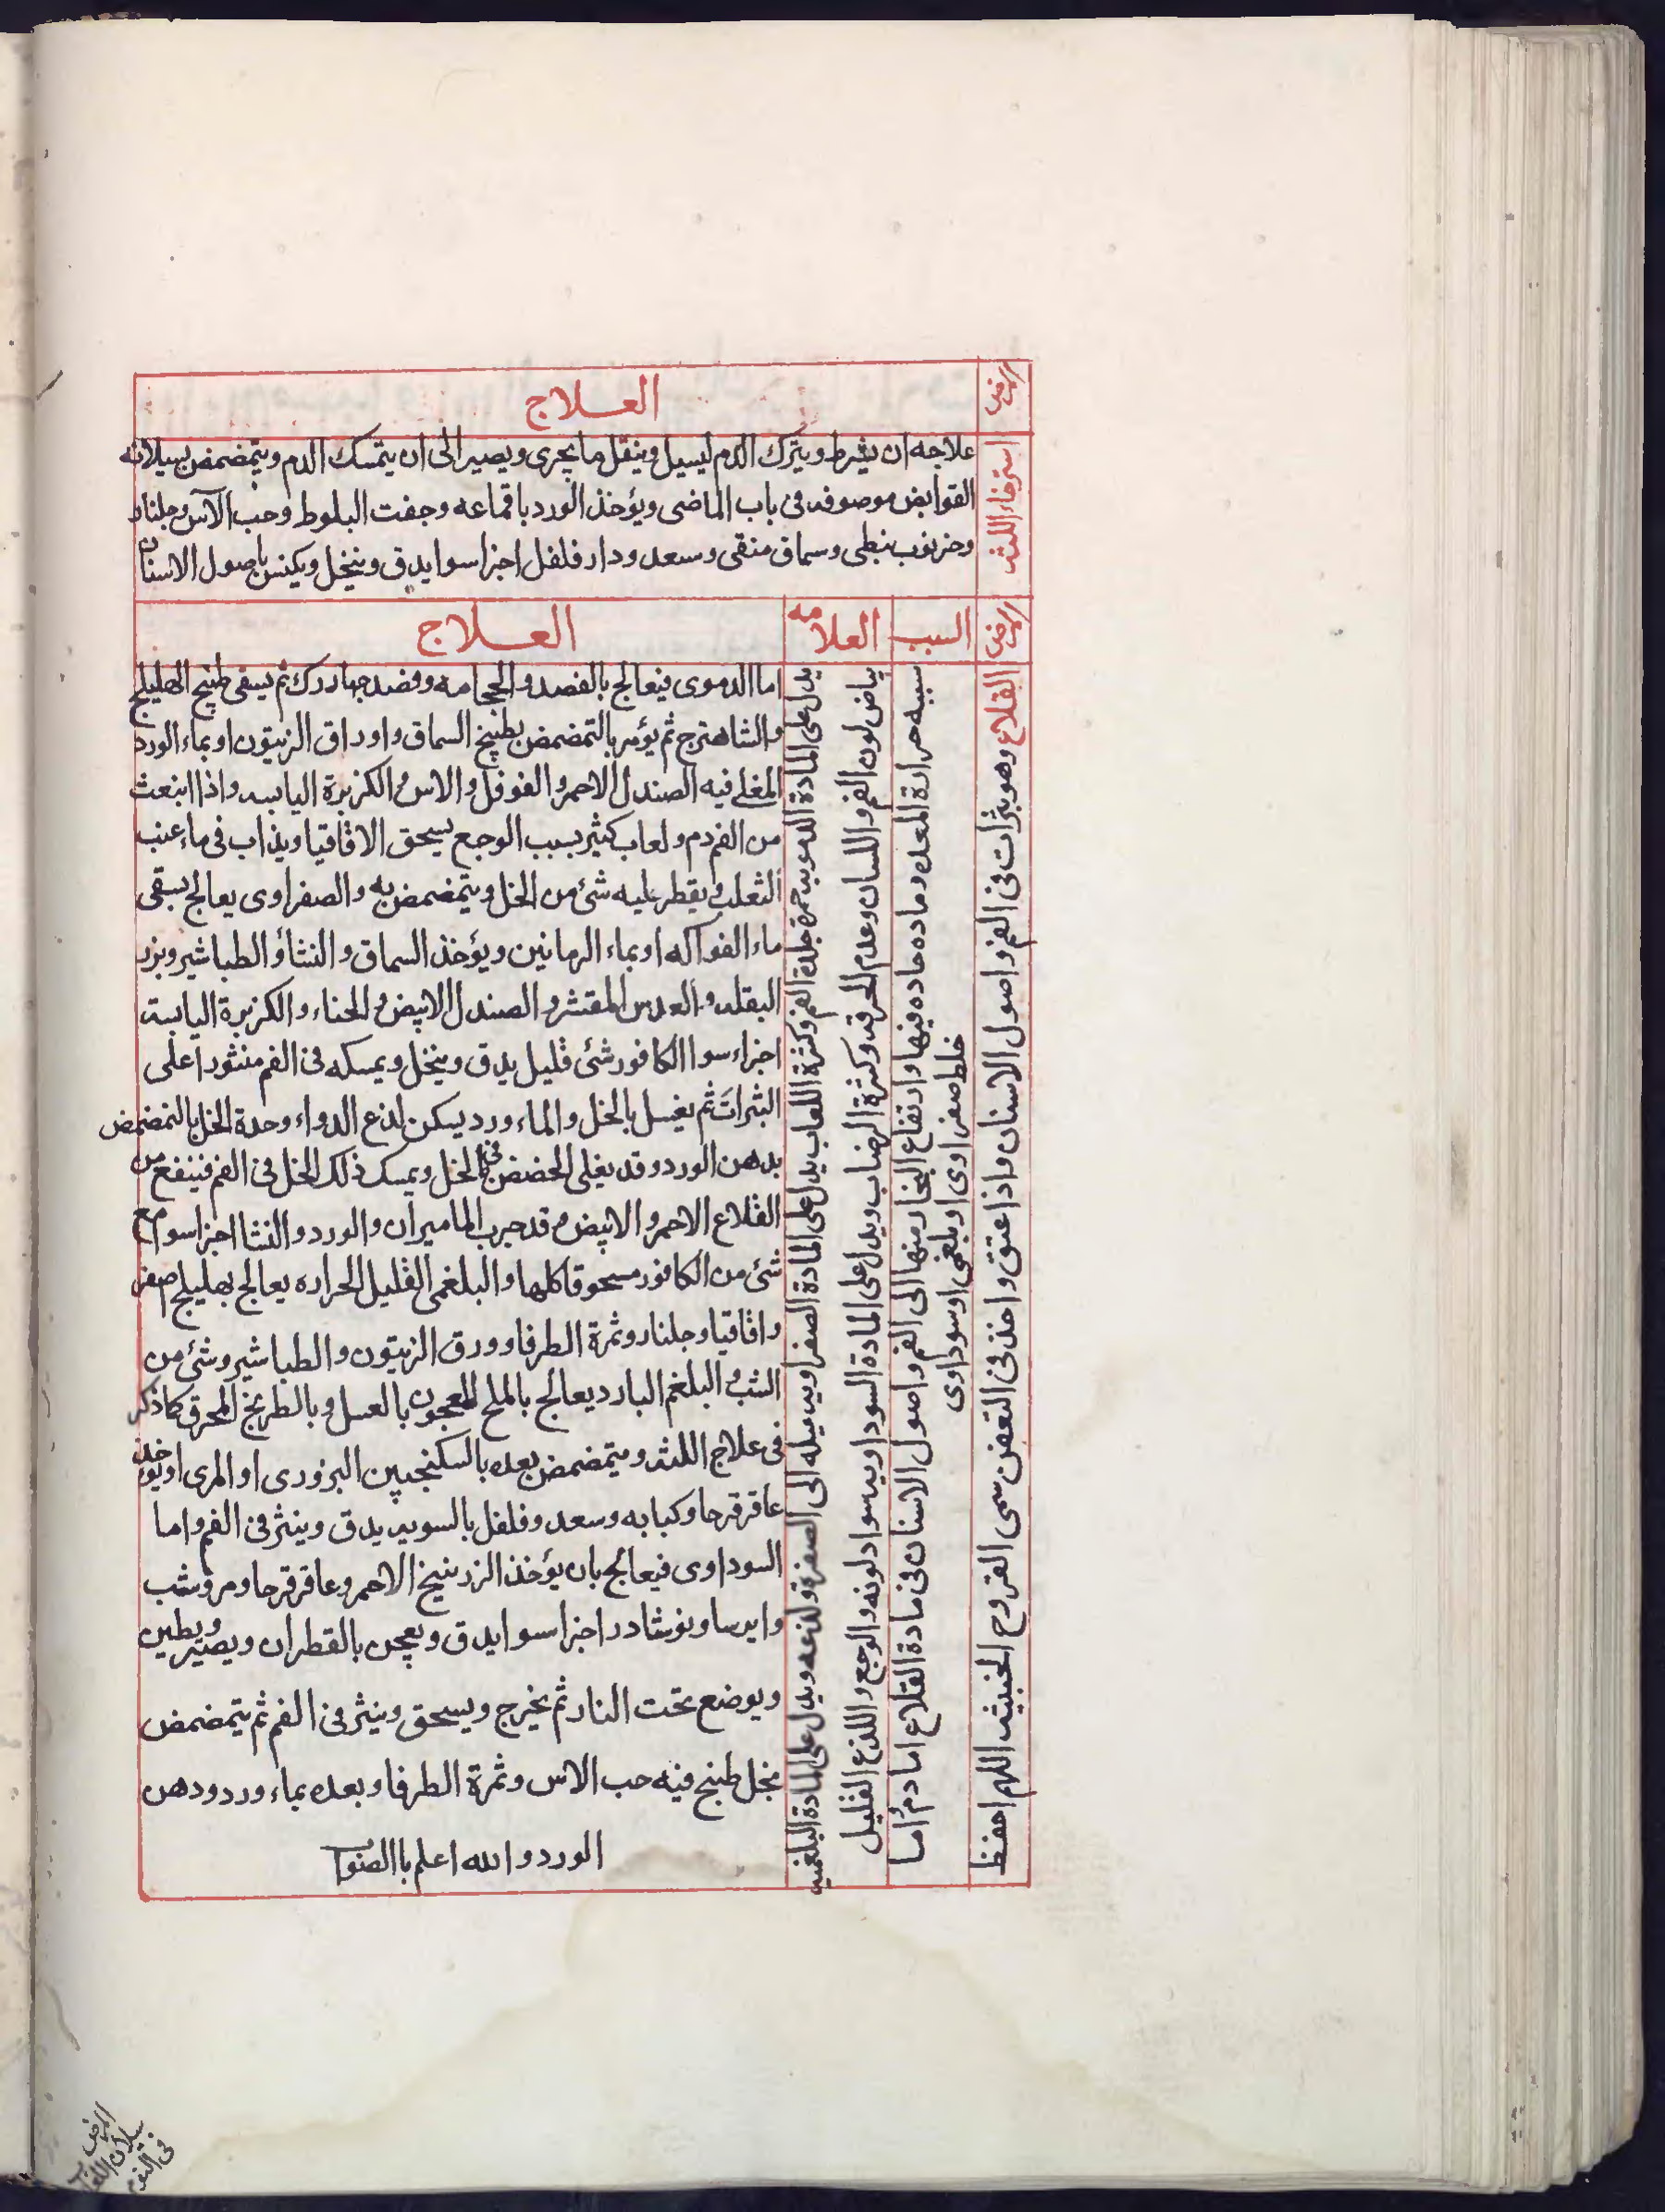 المرض
العلاج
استرخاء اللثه
علاجه ان يشرط ويترك الدم ليسيل وينقل ما يجرى ويصير الى ان يتمسك الدم ويتمضمض بسيلانه
القوابض موصوفه فى باب الماضى ويؤخذ الورد باقماعه وجفت البلوط وحب الآس وجلنار
وخرنوب نبطى وسماق منقى وسعد ودار فلفل اجزا سوا يدق وينخل ويكبس باصول الاسنان
المرض
السبب
العلامه
العلاج
القلاع وهو بثرات فى الفم واصول الاسنان واذا عتق واخذ فى التعفن سمى القروح الخبيثه اللهم احفظ
سببه حرارة المعده وماده حاده فيها وارتفاع البخار منها الى الفم واصول الاسنان فى مادة القلاع اما دم واما
خلط صفراوى او بلغمى او سوداوى
يدل على المادة الدمويه حمرة جلدة الفم وكثرة اللعاب يدل على المادة الصفراويه ميله الى الصفرة ولذعه ويدل على المادة البلغميه
بياض لون الفم واللسان وعدم الحرقه وكثرة الرضاب ويدل على المادة السوداويه سواد لونه والوجع واللذع القليل
اما الدموى فيعالج بالفصد والحجامه وفصد جهارك ثم يسقى طبيخ الهليلج
والشاهترج ثم يؤمر بالتمضمض بطبيخ السماق واوراق الزيتون او بماء الورد
المغلى فيه الصندل الاحمر والفوفل والاس والكزبرة اليابسه واذا انبعث
من الفم دم ولعاب كثير بسبب الوجع يسحق الاقاقيا ويذاب فى ماء عنب
الثعلب ويقطر عليه شئ من الخل ويتمضمض به والصفراوى يعالج بسقى
ماء الفواكه او بماء الرمانين ويؤخذ السماق والنشا والطباشير وبزر
البقله والعدس المقشر والصندل الابيض والحناء والكزبرة اليابسة
اجزاء سوا الكافور شئ قليل يدق وينخل ويمسكه فى الفم منثورا على
البثرات ثم يغسل بالخل والماء ورد يسكن لذع الدواء وحدة الخل بالتمضمض
بدهن الورد وقد يغلى الحضض فى الخل ويمسك ذلك الخل فى الفم فينفع من
القلاع الاحمر والابيض وقد جرب الماميران والورد والنشا اجزا سوا مع
شئ من الكافور مسحوقا كلها والبلغمى القليل الحراره يعالج بهليلج اصفر
واقاقيا وجلنار وثمرة الطرفا وورق الزيتون والطباشير وشئ من
الشب والبلغم البارد يعالج بالملح المعجون بالعسل وبالطريخ المحرق كما ذكر
فى علاج اللثه ويتمضمض بعده بالسكنجبين البزورى او المرى او يؤخذ
عاقرقرحا وكبابه وسعد وفلفل بالسويه يدق وينثر فى الفم واما
السوداوى فيعالج بان يؤخذ الزرنيخ الاحمر وعاقرقرحا ومر وشب
وايرسا ونوشادر اجزا سوا يدق ويعجن بالقطران ويصير ويطين
ويوضع تحت النار ثم يخرج ويسحق وينثر فى الفم ثم يتمضمض
بخل طبخ فيه حب الاس وثمرة الطرفا وبعده بماء ورد ودهن
الورد والله اعلم باالصواب
المرض
سيلان اللعاب
فى النوم